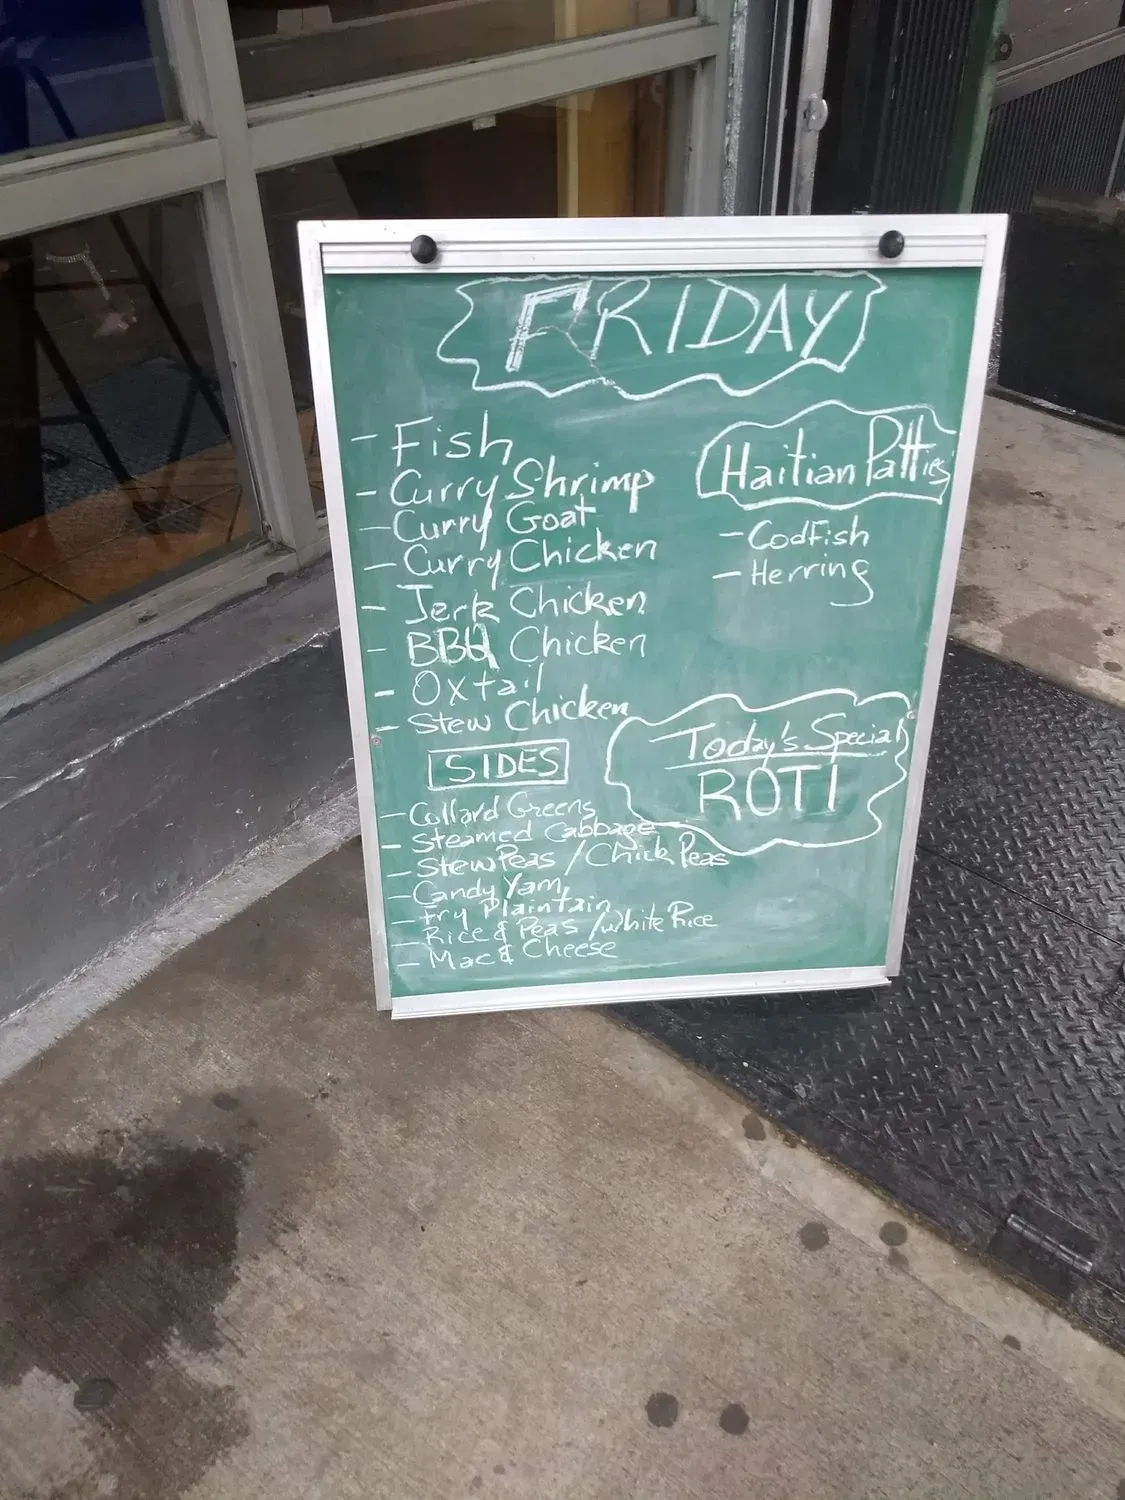 FRIDAY
- Fish
- Curry Shrimp
- Curry Goat
- Curry Chicken
- Jerk Chicken
- BBQ Chicken
- Oxtail
- Stew Chicken
SIDES
- Collard Greens
- Steamed Cabbage
- Stew Peas / Chick Peas
- Candy Yam
- Fry Plaintain
- Rice & Peas / White Rice
- Mac & Cheese
Haitian Patties
- CodFish
- Herring
Today's Special
ROTI